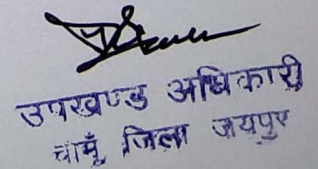 उपखण्ड अधिकारी
चामूँ जिला जयपुर